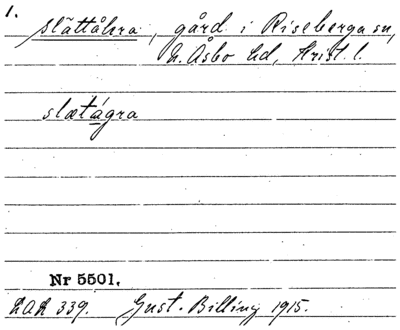 1.
Slättåkra, gård i Riseberga sn,
N. Åsbo hd, Krist. l.
slætågra
Nr 5501.
LAL 339. Gust. Billing 1915.